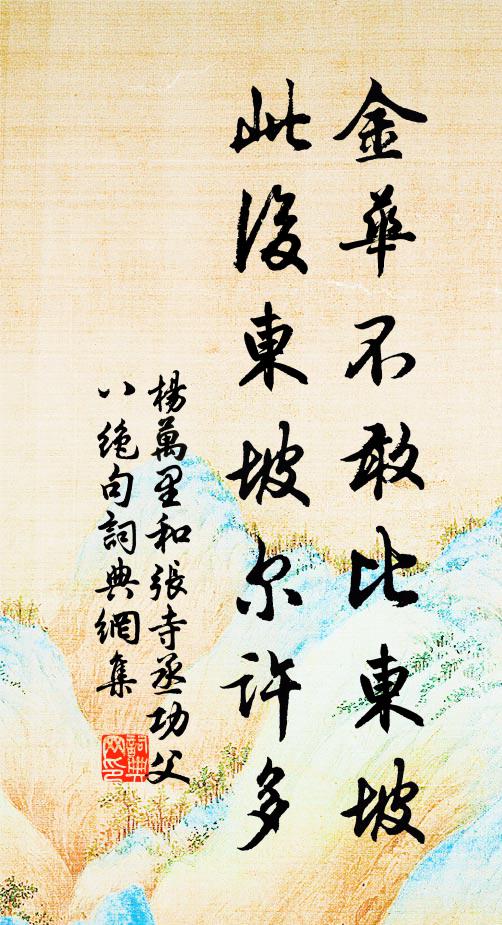 金華不敢比東坡
此後東坡尔許多
楊萬里和張寺丞功父
八絶句詞典網集
詞典網印